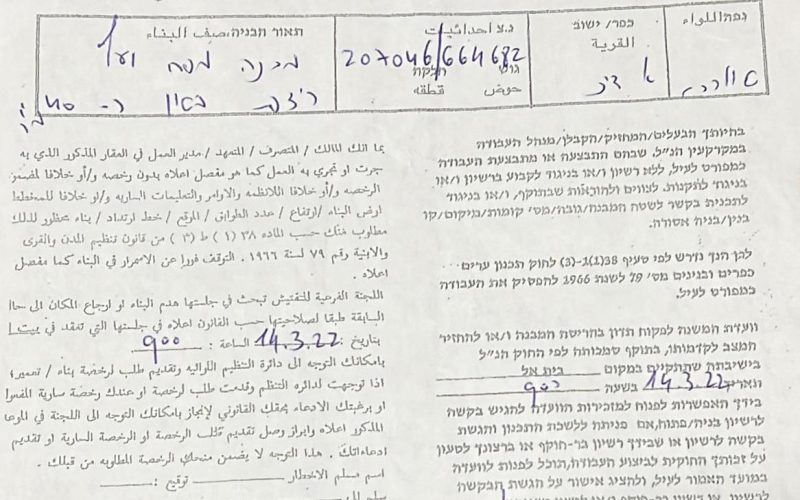 נפת/אללואא
כפר/ישוב
القرية
נ.צ/אחדאתיאת
207046/664682
גוש חלקה
حوض قطعه
תאור הבניה، صف البناء
מבנה
בגין
ב- 40
בהיותך הבעלים/המחזיק/הקבלן/מנהל העבודה
במקרקעין הנ״ל, שבהם התבצעה או מתבצעת העבודה
כמפורט לעיל, ללא רשיון ו/או בניגוד לקבוע ברשיון ו/או
בניגוד לתקנות, לצווים ולהוראות שבתוקף, ו/או בניגוד
לתכנית בקשר לשטח המבנה/גובה/מס׳ קומות/מיקום/קו
בנין/בניה אסורה.
לכן הנך נדרש לפי סעיף 38(1)-(3) לחוק תכנון ערים
כפרים ובנינים מס׳ 79 לשנת 1966 להפסיק את העבודה
כמפורט לעיל.
וועדת המשנה לפקוח תדון בהריסת המבנה ו/או להחזיר
המצב לקדמותו, בתוקף סמכותה לפי החוק הנ״ל
בישיבתה שתתקיים במקום בית אל
תאריך 14.3.22 בשעה 900
בידך האפשרות לפנות למזכירות הוועדה להגיש בקשה
לרשיון בניה/פתוח, אם פניתה ללשכת התכנון והגשת
בקשה לרשיון או שבידך רשיון בר-תוקף או ברצונך לטעון
על זכותך החוקית לביצוע העבודה, תוכל לפנות לוועדה
במועד האמור לעיל, ולהציג אישור על הגשת הבקשה
بما انك المالك / المتصرف / المتعهد / مدير العمل في العقار المذكور الذي به
جرت او تجري به العمل كما هو مفصل اعلاه بدون رخصه و/أو خلافا لمضمن
الرخصه و/أو خلافا للانظمه والاوامر والتعليمات الساريه و/او خلافا للمخطط
ارض البناء / ارتفاع / عدد الطوابق / الموقع / خط ارتداد / بناء محظور لذلك
مطلوب منك حسب الماده ٣٨ (١) ط (٣) من قانون تنظيم المدن والقرى
والابنية رقم ٧٩ لسنة ١٩٦٦. التوقف فورا عن الاستمرار في البناء كما مفصل
اعلاه.
اللجنة الفرعية للتفتيش تبحث في جلستها هدم البناء او ارجاع المكان الى
السابقة طبقا لصلاحيتها حسب القانون اعلاه في جلستها التي تعقد في
بتاريخ: 14.3.22 الساعة: 900
بامكانك التوجه الى دائرة التنظيم اللوائيه وتقديم طلب لرخصة بناء / تعمير،
اذا توجهت لدائره التنظم وقدمت طلب لرخصة او عندك رخصة سارية المفعول
او برغبتك الادعاء بحقك القانوني لإنجاز بامكانك التوجه الى اللجنة في
المذكور اعلاه وابراز وصل تقديم طلب الرخصة او الرخصة السارية او تقديم
ادعاءاتك. هذا التوجه لا يضمن منحك الرخصة المطلوبه من قبلك.
اسم مسلم الاخطار ـــــــ توقيع: ـــــــ